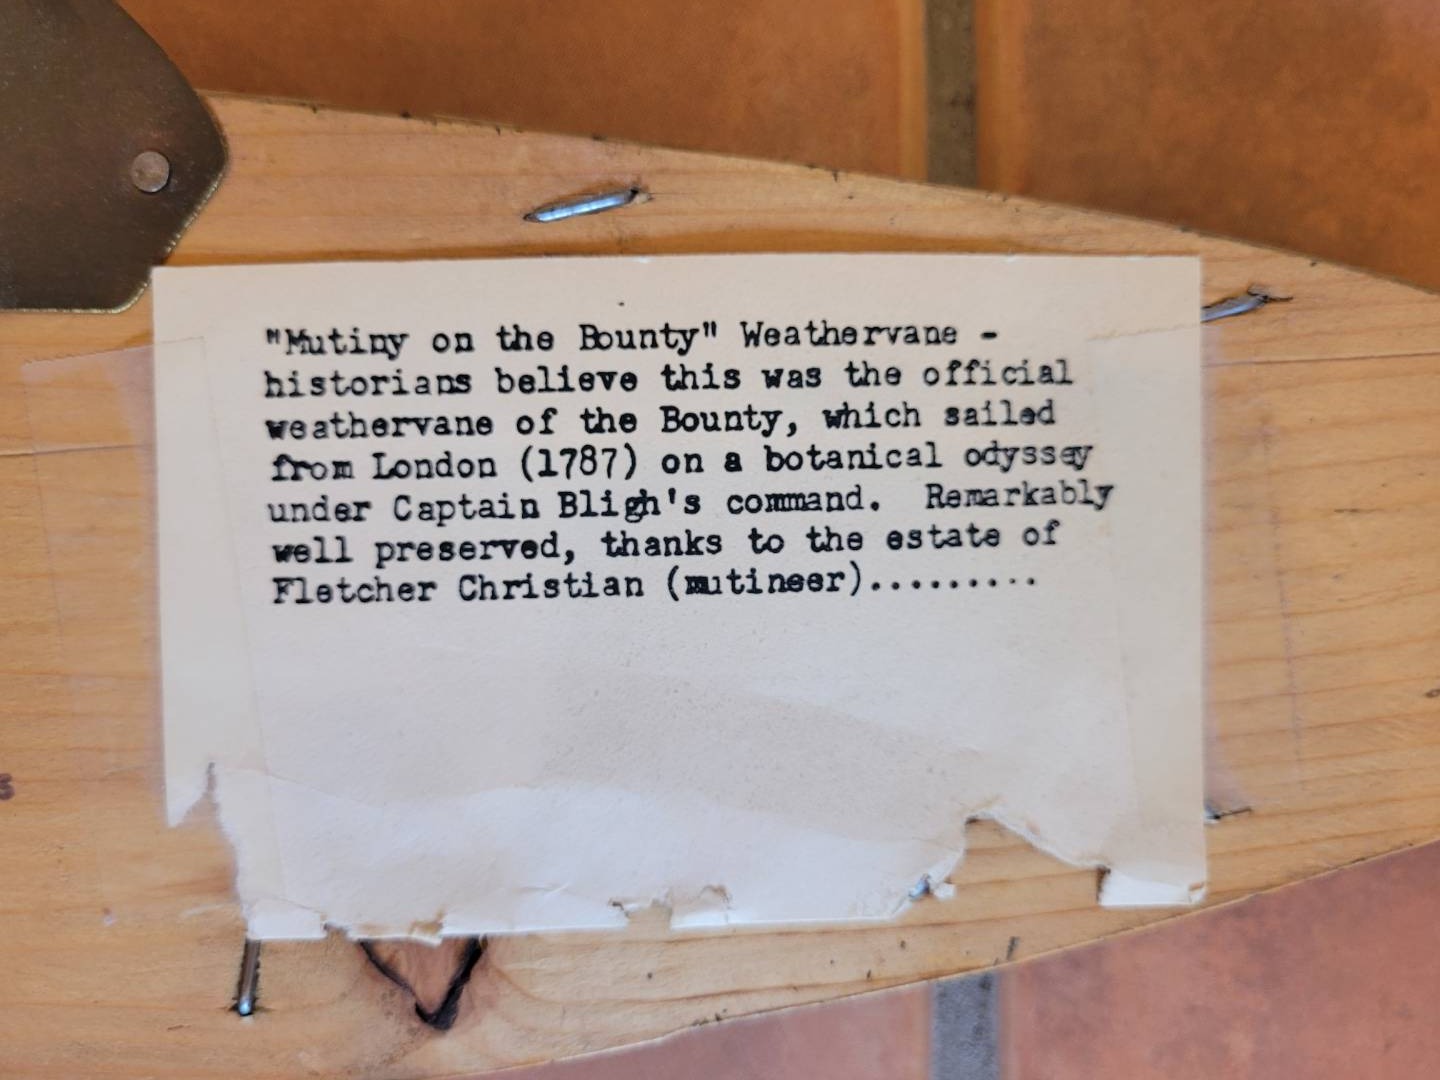 "Mutiny on the Bounty" Weathervane -
historians believe this was the official
weathervane of the Bounty, which sailed
from London (1787) on a botanical odyssey
under Captain Bligh's command.  Remarkably
well preserved, thanks to the estate of
Fletcher Christian (mutineer).........